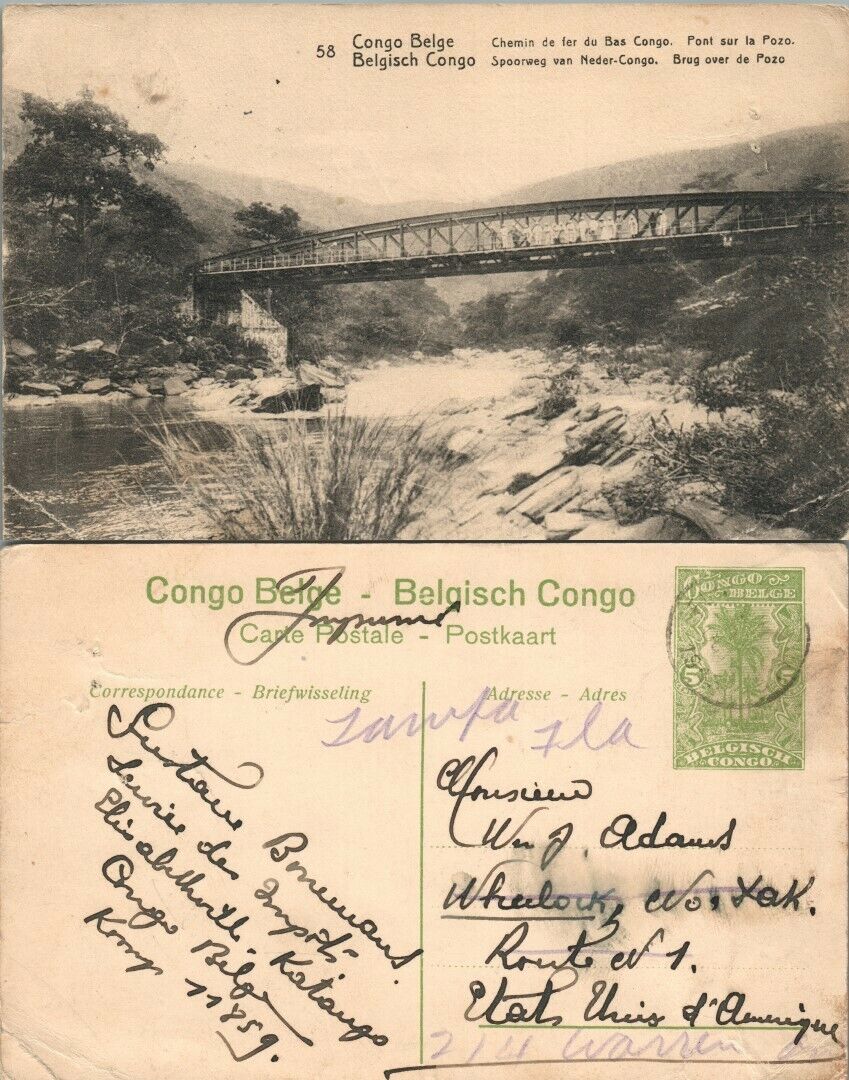 58 Congo Belge Chemin de fer du Bas Congo. Pont sur la Pozo.
Belgisch Congo Spoorweg van Neder-Congo. Brug over de Pozo
Congo Belge - Belgisch Congo
Carte Postale - Postkaart
Correspondance - Briefwisseling
Adresse - Adres
CONGO BELGE
5c
BELGISCH CONGO
Tampa Fla
Gustave Bonemans.
Service des Impôts
Elisabethville. Katanga
Congo Belge
11859.
Monsieur
Wm J. Adams
Wheelock, No. Dak.
Route N 1.
Etats Unis d'Amerique
214 Warren